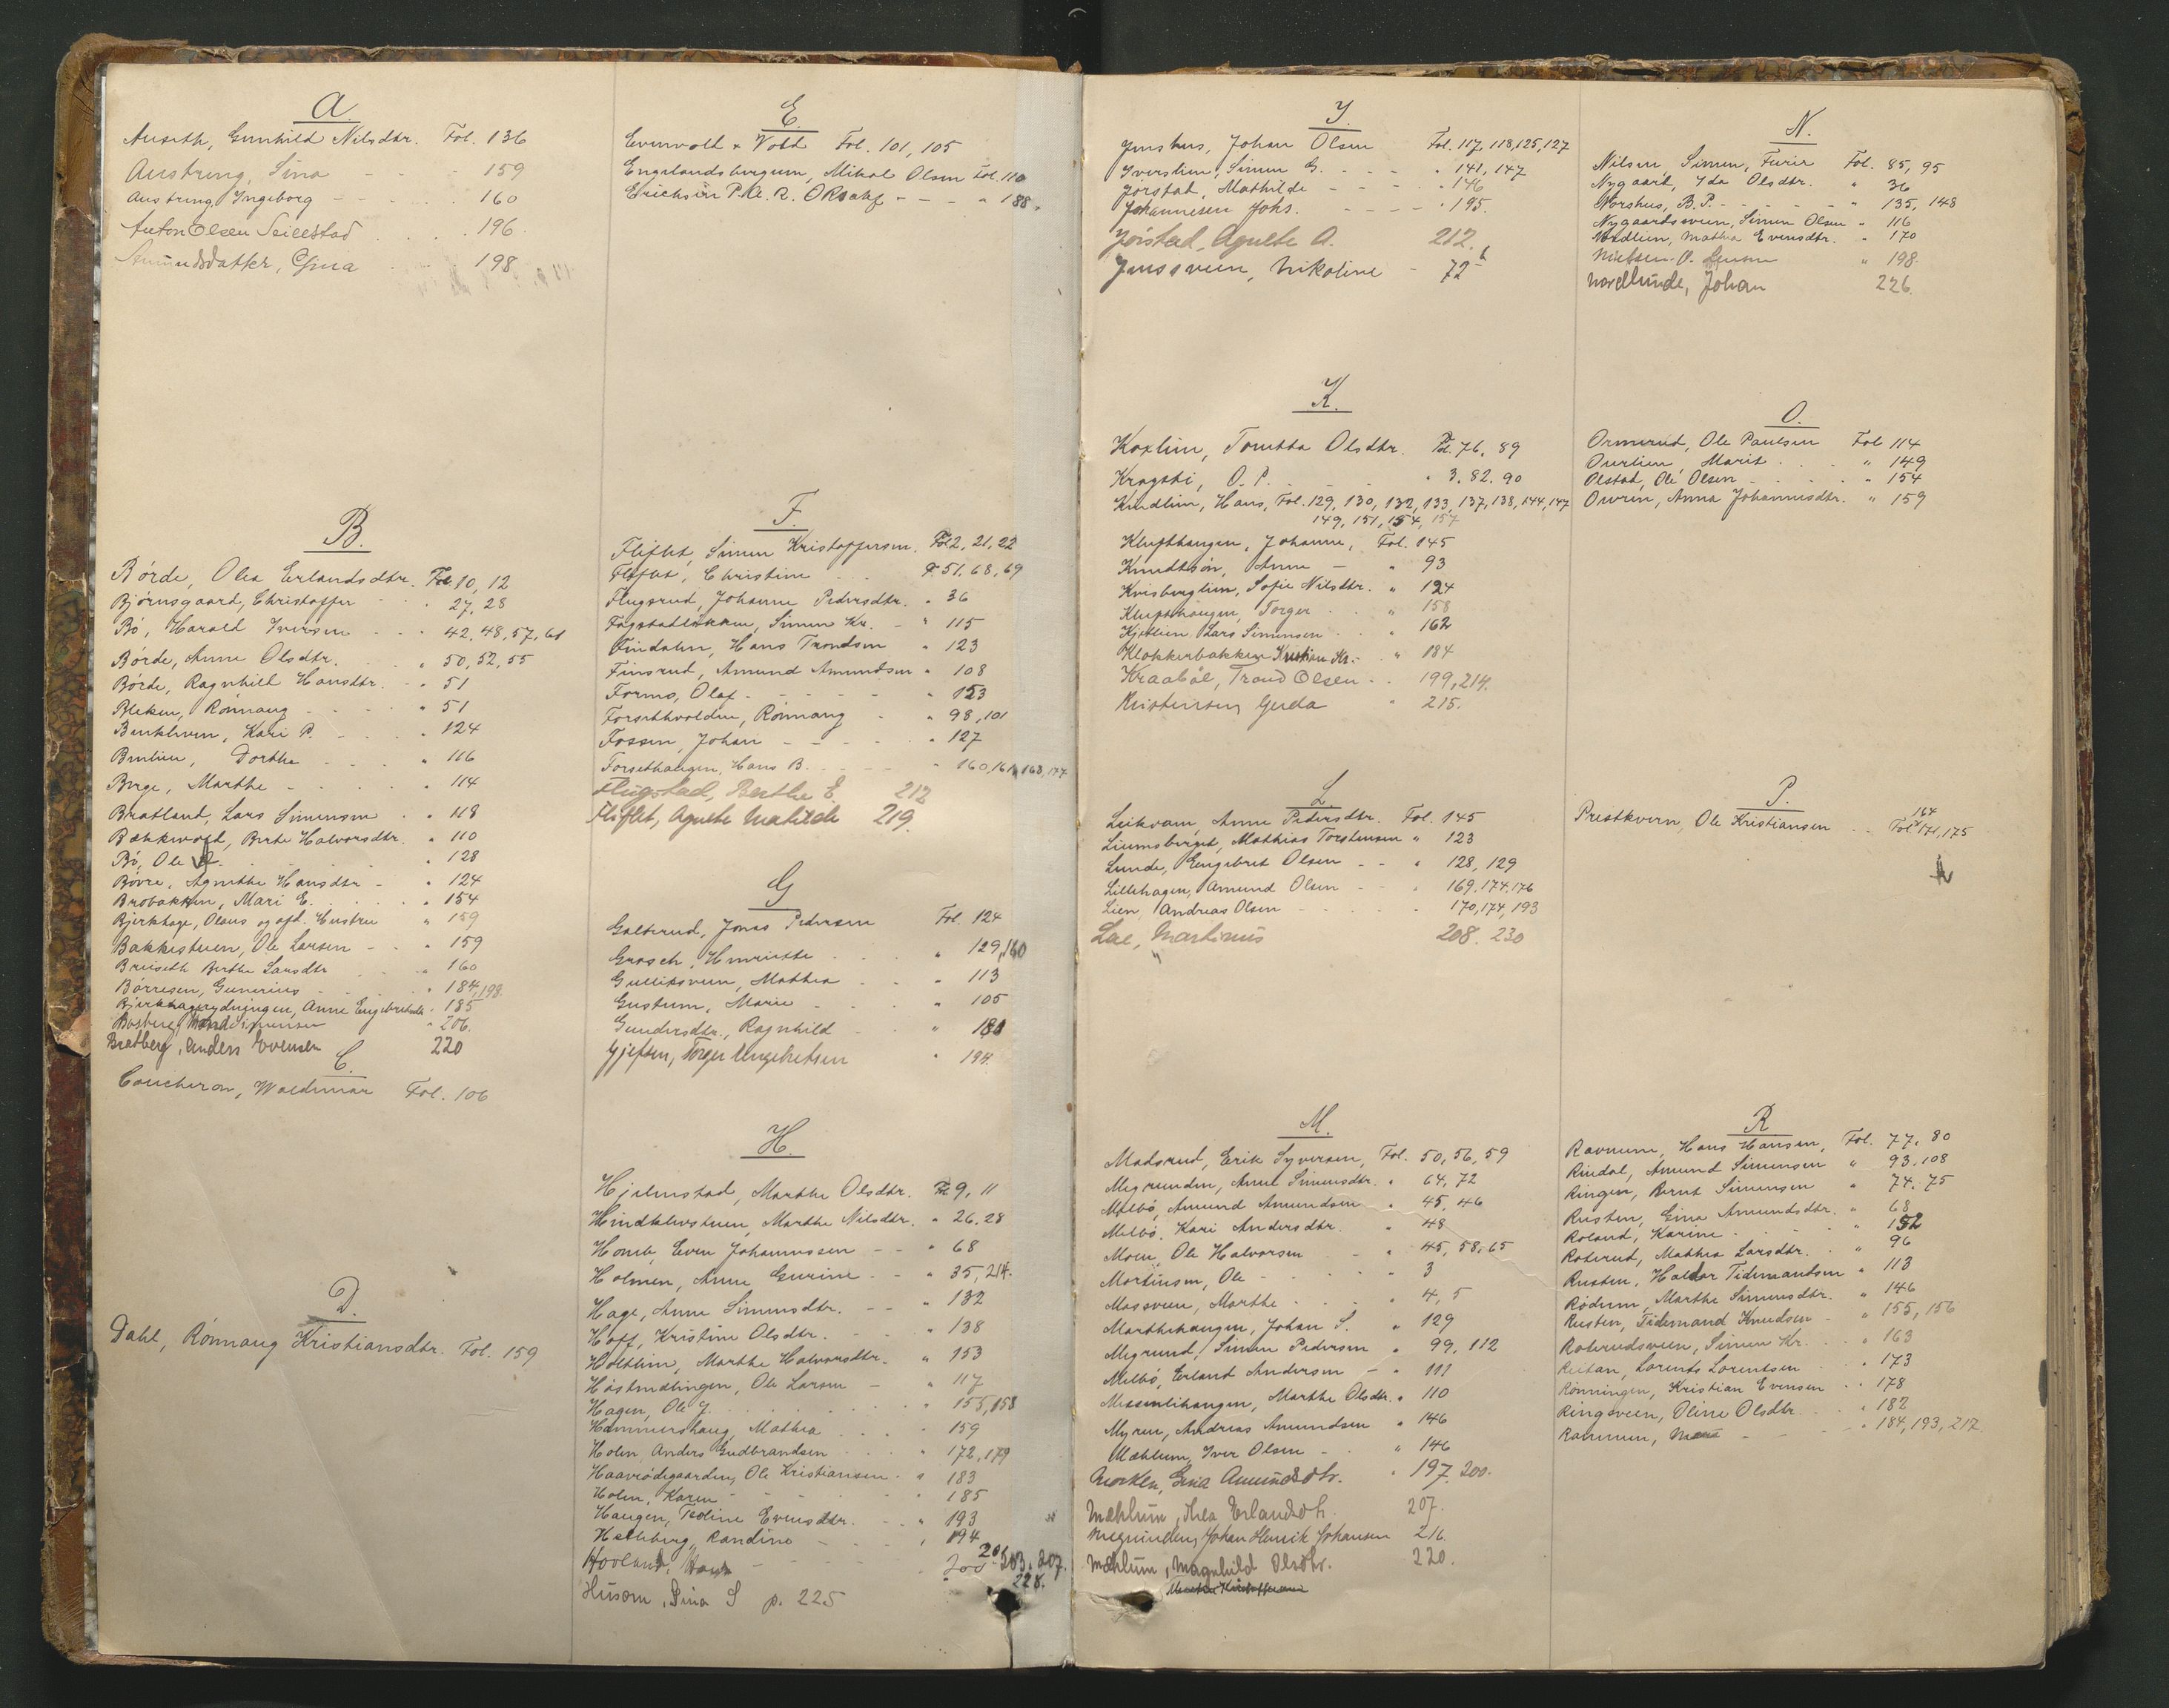 A
Auseth, Gunhild Nilsdtr. Fol. 136
Austreng, Sina - - - 159
Austreng Ingeborg - - - 160
Anton Olsen Seielstad . . . 196.
Amundsdatter, Gina . . 198
B.
Börde, Olea Erlandsdtr. Fol. 10, 12
Bjørnsgaard, Christoffer - " 27, 28
Bö, Harald Iversen - - " 42, 48, 57, 61
Börde, Anne Olsdtr. - " 50, 52, 55
Börde, Ragnhild Hansdtr. - " 51
Bleken, Rönnaug - - - " 51
Kari P. - - - " 124
Dorthe - - - " 116
Berge, Marthe - - - " 114
Bratland, Lars Simensen . " 118
Bækkevold, Berte Halvorsdtr. " 110
Bö, Ole . . . " 128
Bövre, Agnethe Hansdtr - " 124
Brobakken, Mari E. . . " 154
Bjerkhage, Olaus og afd. Hustru " 159
Bakkestuen, Ole Larsen - - " 159
Breiseth Berthe Larsdtr . . " 160
Börresen, Gunerius - . . " 184, 198.
Bjerkhagerydningen, Anne Engebretsdtr. " 185
Simensen " 206.
Bredberg, Anders Evensen 220
C.
Coucheron, Waldemar Fol. 106
D.
Dahl, Rönnaug Kristiansdtr. Fol. 159
E.
Evenvold x Vold Fol. 101, 105
Engelandsbergum, Mikal Olsen Fol. 110
Erichsen P. - - - " 188.
F.
Fliflet, Simen Kristoffersen. Fol. 2, 21, 22
Fliflet, Christine . . . F. 51, 68, 69
Flugsrud, Johanne Pedersdtr. " 36
Fagstadløkken, Simen Kr. - " 115
Findalen, Hans Trondsen " 123
Finsrud, Amund Amundsen " 108
Formo, Olaf - - - - - " 153
Forsethvolden, Rönnaug - " 98, 101
Fossen, Johan - - - " 127
Forsethaugen, Hans B. - - - " 160, 161, 163, 177
Flugstad, Berthe E. 212
Fliflet, Agnete Matilde 219.
G
Galterud, Jonas Pedersen Fol. 124
Grosch, Henriette . . . " 129, 160
Gulliksveen, Mathea - - " 113
Gustum, Marie - - - " 105
Gundersdtr., Ragnhild - - " 181
Gjefsen, Torger Engebretsen " 194.
H.
Hjelmstad, Marthe Olsdtr. Fol. 9, 11
Hindklevstuen, Marthe Nilsdtr. " 26, 28
Homb, Even Johannessen - - " 68
Holmen, Anne Gurine - - " 35, 214.
Hage, Anne Simensdtr. - - " 132
Hoff, Kristine Olsdtr. - - " 138
Holtlien, Marthe Halvorsdtr. " 153
Höstmælingen, Ole Larsen - " 117
Hagen, Ole J. . . . . " 155, 158
Hammershaug, Mathea . . . " 159
Holen, Anders Gudbrandsen - - " 172, 179
Haavrödegaarden, Ole Kristiansen. " 183
Holen, Karen - - - - " 185
Haugen, Teoline Evensdtr. - - " 193
Randine - - - " 194
Hovland, Hans - - - " 200 201, 203, 207.
228.
Husom, Sina S p. 225
I.
Jenshus, Johan Olsen Fol. 117, 118, 125, 127
Iverslien, Simen G. - - - " 141, 147
Jörstad, Mathilde - - - " 146
Johannesen Johs. - - - " 195.
Jörstad, Agnethe A. 212.
Jenssveen, Nikoline - 72 b
K.
Koxlien, Tomtta Olsdtr. Fol. 76, 89
Kragstí, O. P. - - - " 3, 82, 90
Kindlien, Hans, Fol. 129, 130, 132, 133, 137, 138, 144, 147
149, 151, 154, 157
Klufthaugen, Johanne, Fol. 145
Knudtsön, Anne - " 93
Kvisberglien, Sofie Nilsdtr. " 124
Klufthaugen, Torger . . " 158
Kjetlien Lars Simensen . . " 162
Klokkerbakken Kristian Kr. - . " 184
Kraaböl, Trond Olsen - . 199, 214.
Kristensen Gerda " 215.
L
Leikvam, Anne Pedersdtr. Fol. 145
Liumsberget, Mathias Torstensen " 123
Lunde, Engebret Olsen - - " 128, 129
Lillehagen, Amund Olsen - - " 169, 174, 176
Lien, Andreas Olsen - - - " 170, 174, 193
Lae, Martinus 208. 230
"
M.
Madsrud, Erik Syversen, Fol. 50, 56, 59
Megrunden, Anne Simensdtr. " 64, 72
Melbö, Amund Amundsen " 45, 46
Melbö, Kari Andersdtr. " 48
Moen, Ole Halvorsen - " 45, 58, 65
Mortensen, Ole - - - " 3
Mosveen, Marthe - - - " 4, 5
Marthehaugen, Johan S. " 129
Megrund, Simen Pedersen " 99, 112
Melbö, Erland Andersen - " 111
Messenlihaugen, Marthe Olsdtr. " 110
Myren, Andreas Amundsen " 146
Mæhlum, Iver Olsen - - " 146
Morken, Gina Amundsdtr. " 197, 200.
Mæhlum, Thea Erlandsdtr. 207.
Megrunden, Johan Henrik Johansen 216
Mæhlum, Magnhild Olsdtr. 220.
N.
Nilsen, Simen, Furir Fol. 85, 95
Nygaard, Ida Olsdtr. " 36
Norshus, B. P. - - - " 135, 148
Nygaardsveen, Simen Olsen " 116
Nordlien, Mathea Evensdtr. " 170
Nielsen. O. " 198.
Nordlunde, Johan 226.
O.
Ormerud, Ole Paulsen Fol 114
Overlien, Marit . . " 149
Olstad, Ole Olsen - - - " 154
Owren, Anna Johannesdtr. " 159
P.
Prestkvern, Ole Kristiansen . . Fol. 164 171, 175
R
Ravnum, Hans Hansen, Fol. 77, 80
Rindal, Amund Simensen " 93, 108
Ringen, Bernt Simensen " 74, 75
Rusten, Eina Amundsdtr. " 68
Roland, Karine - - " 152
Roterud, Mathea Larsdtr. " 96
Rusten, Haldor Tidemandsen " 113
Rödum, Marthe Simensdtr. " 146
Rusten, Tidemand Knudsen - " 155, 156
Roterudsveen, Simen Kr. - - " 163
Reitan, Lorents Lorentsen . . " 173
Rönningen, Kristian Evensen . . 178
Ringsveen, Oline Olsdtr. . . " 182
- - - " 184, 193, 217.